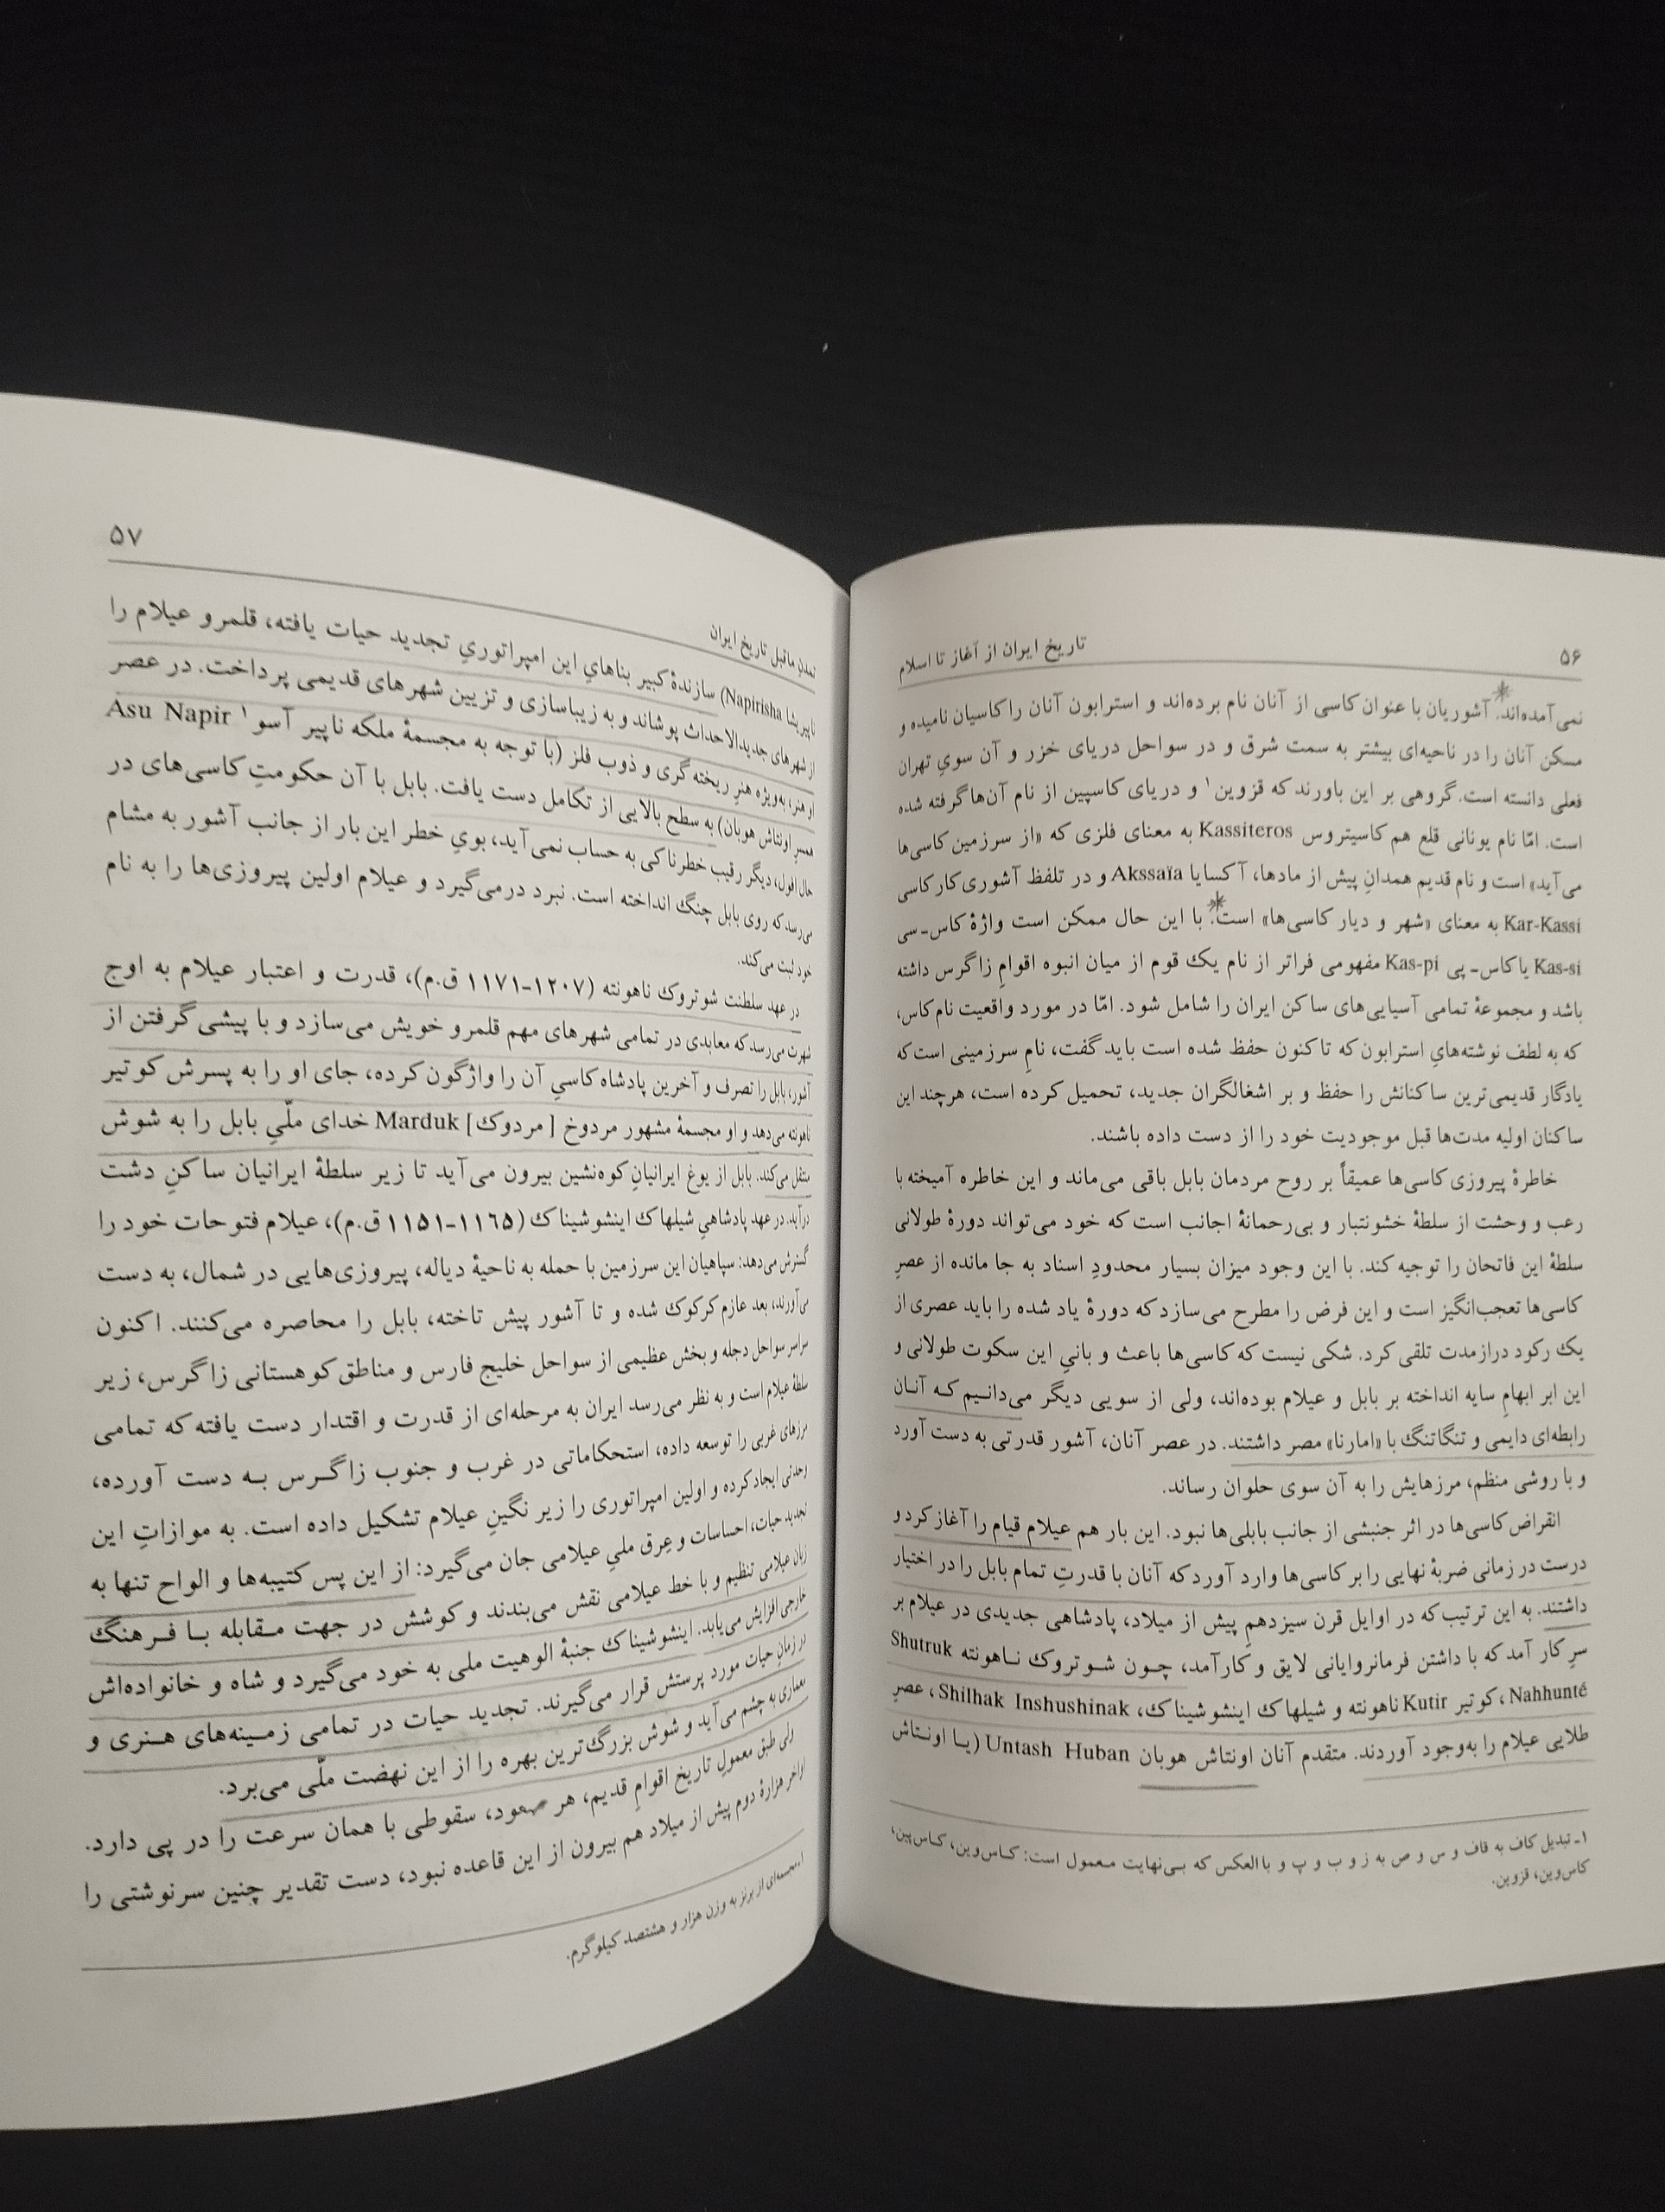 ۵۶
تاریخ ایران از آغاز تا اسلام
نمی‌آمده‌اند. آشوریان با عنوان کاسی از آنان نام برده‌اند و استرابون آنان را کاسیان نامیده و
مسکن آنان را در ناحیه‌ای بیشتر به سمت شرق و در سواحل دریای خزر و آن سویِ تهران
فعلی دانسته است. گروهی بر این باورند که قزوین۱ و دریای کاسپین از نام آن‌ها گرفته شده
است. امّا نام یونانی قلع هم کاسیتروس Kassiteros به معنای فلزی که «از سرزمین کاسی‌ها
می‌آید» است و نام قدیم همدانِ پیش از مادها، آکسایا Akssaïa و در تلفظ آشوری کار کاسی
Kar-Kassi به معنای «شهر و دیار کاسی‌ها» است. با این حال ممکن است واژهٔ کاس-سی
Kas-si یا کاس- پی Kas-pi مفهومی فراتر از نام یک قوم از میان انبوه اقوامِ زاگرس داشته
باشد و مجموعهٔ تمامی آسیایی‌های ساکن ایران را شامل شود. امّا در مورد واقعیت نام کاس،
که به لطف نوشته‌هایِ استرابون که تاکنون حفظ شده است باید گفت، نامِ سرزمینی است که
یادگار قدیمی‌ترین ساکنانش را حفظ و بر اشغالگران جدید، تحمیل کرده است، هرچند این
ساکنان اولیه مدت‌ها قبل موجودیت خود را از دست داده باشند.
خاطرهٔ پیروزی کاسی‌ها عمیقاً بر روح مردمان بابل باقی می‌ماند و این خاطره آمیخته با
رعب و وحشت از سلطهٔ خشونتبار و بی‌رحمانهٔ اجانب است که خود می‌تواند دورهٔ طولانی
سلطهٔ این فاتحان را توجیه کند. با این وجود میزان بسیار محدودِ اسناد به جا مانده از عصرِ
کاسی‌ها تعجب‌انگیز است و این فرض را مطرح می‌سازد که دورهٔ یاد شده را باید عصری از
یک رکود درازمدت تلقی کرد. شکی نیست که کاسی‌ها باعث و بانیِ این سکوت طولانی و
این ابر ابهامِ سایه انداخته بر بابل و عیلام بوده‌اند، ولی از سویی دیگر می‌دانیم که آنان
رابطه‌ای دایمی و تنگاتنگ با «امارنا» مصر داشتند. در عصر آنان، آشور قدرتی به دست آورد
و با روشی منظم، مرزهایش را به آن سوی حلوان رساند.
انقراض کاسی‌ها در اثر جنبشی از جانب بابلی‌ها نبود. این بار هم عیلام قیام را آغاز کرد و
درست در زمانی ضربهٔ نهایی را بر کاسی‌ها وارد آورد که آنان با قدرتِ تمام بابل را در اختیار
داشتند. به این ترتیب که در اوایل قرن سیزدهمِ پیش از میلاد، پادشاهی جدیدی در عیلام بر
سرِ کار آمد که با داشتن فرمانروایانی لایق و کارآمد، چون شوتروک ناهونته Shutruk
Nahhunté، کوتیر Kutir ناهونته و شیلهاک اینشوشیناک، Shilhak Inshushinak، عصرِ
طلایی عیلام را به‌وجود آوردند. متقدم آنان اونتاش هوبان Untash Huban (یا اونتاش
۱ـ تبدیل کاف به قاف و س و ص به ز و ب و پ و یا العکس که بی‌نهایت معمول است: کاس‌وین، کاس‌پین،
کاس‌وین، قزوین.
تمدنِ ماقبل تاریخ ایران
۵۷
ناپیریشا Napirisha) سازندهٔ کبیر بناهایِ این امپراتوریِ تجدید حیات یافته، قلمرو عیلام را
از شهرهای جدیدالاحداث پوشاند و به زیباسازی و تزیین شهرهای قدیمی پرداخت. در عصر
او هنر، به‌ویژه هنرِ ریخته‌گری و ذوب فلز (با توجه به مجسمهٔ ملکه ناپیر آسو۱ Asu Napir
همسرِ اونتاش هوبان) به سطح بالایی از تکامل دست یافت. بابل با آن حکومتِ کاسی‌های در
حال افول، دیگر رقیب خطرناکی به حساب نمی‌آید، بویِ خطر این بار از جانب آشور به مشام
می‌رسد که روی بابل چنگ انداخته است. نبرد درمی‌گیرد و عیلام اولین پیروزی‌ها را به نام
خود ثبت می‌کند.
در عهد سلطنت شوتروک ناهونته (۱۲۰۷-۱۱۷۱ ق.م)، قدرت و اعتبار عیلام به اوج
شهرت می‌رسد که معابدی در تمامی شهرهای مهم قلمرو خویش می‌سازد و با پیشی گرفتن از
آشور، بابل را تصرف و آخرین پادشاه کاسیِ آن را واژگون کرده، جای او را به پسرش کوتیر
ناهونته می‌دهد و او مجسمهٔ مشهور مردوخ [مردوک] Marduk خدای ملّیِ بابل را به شوش
منتقل می‌کند. بابل از یوغ ایرانیانِ کوه‌نشین بیرون می‌آید تا زیر سلطهٔ ایرانیان ساکنِ دشت
درآید. در عهد پادشاهیِ شیلهاک اینشوشیناک (۱۱۶۵-۱۱۵۱ ق.م)، عیلام فتوحات خود را
گسترش می‌دهد: سپاهیان این سرزمین با حمله به ناحیهٔ دیاله، پیروزی‌هایی در شمال، به دست
می‌آورند، بعد عازم کرکوک شده و تا آشور پیش تاخته، بابل را محاصره می‌کنند. اکنون
سراسر سواحل دجله و بخش عظیمی از سواحل خلیج فارس و مناطق کوهستانی زاگرس، زیر
سلطهٔ عیلام است و به نظر می‌رسد ایران به مرحله‌ای از قدرت و اقتدار دست یافته که تمامی
مرزهای غربی را توسعه داده، استحکاماتی در غرب و جنوب زاگرس به دست آورده،
وحدتی ایجاد کرده و اولین امپراتوری را زیر نگینِ عیلام تشکیل داده است. به موازاتِ این
تجدید حیات، احساسات و عِرق ملیِ عیلامی جان می‌گیرد: از این پس کتیبه‌ها و الواح تنها به
زبان عیلامی تنظیم و با خط عیلامی نقش می‌بندند و کوشش در جهت مقابله با فرهنگ
خارجی افزایش می‌یابد. اینشوشیناک جنبهٔ الوهیت ملی به خود می‌گیرد و شاه و خانواده‌اش
در زمانِ حیات مورد پرستش قرار می‌گیرند. تجدید حیات در تمامی زمینه‌های هنری و
معماری به چشم می‌آید و شوش بزرگ‌ترین بهره را از این نهضت ملّی می‌برد.
ولی طبق معمولِ تاریخ اقوامِ قدیم، هر صعود، سقوطی با همان سرعت را در پی دارد.
اواخر هزارهٔ دوم پیش از میلاد هم بیرون از این قاعده نبود، دست تقدیر چنین سرنوشتی را
۱ـ مجسمه‌ای از برنز به وزن هزار و هشتصد کیلوگرم.